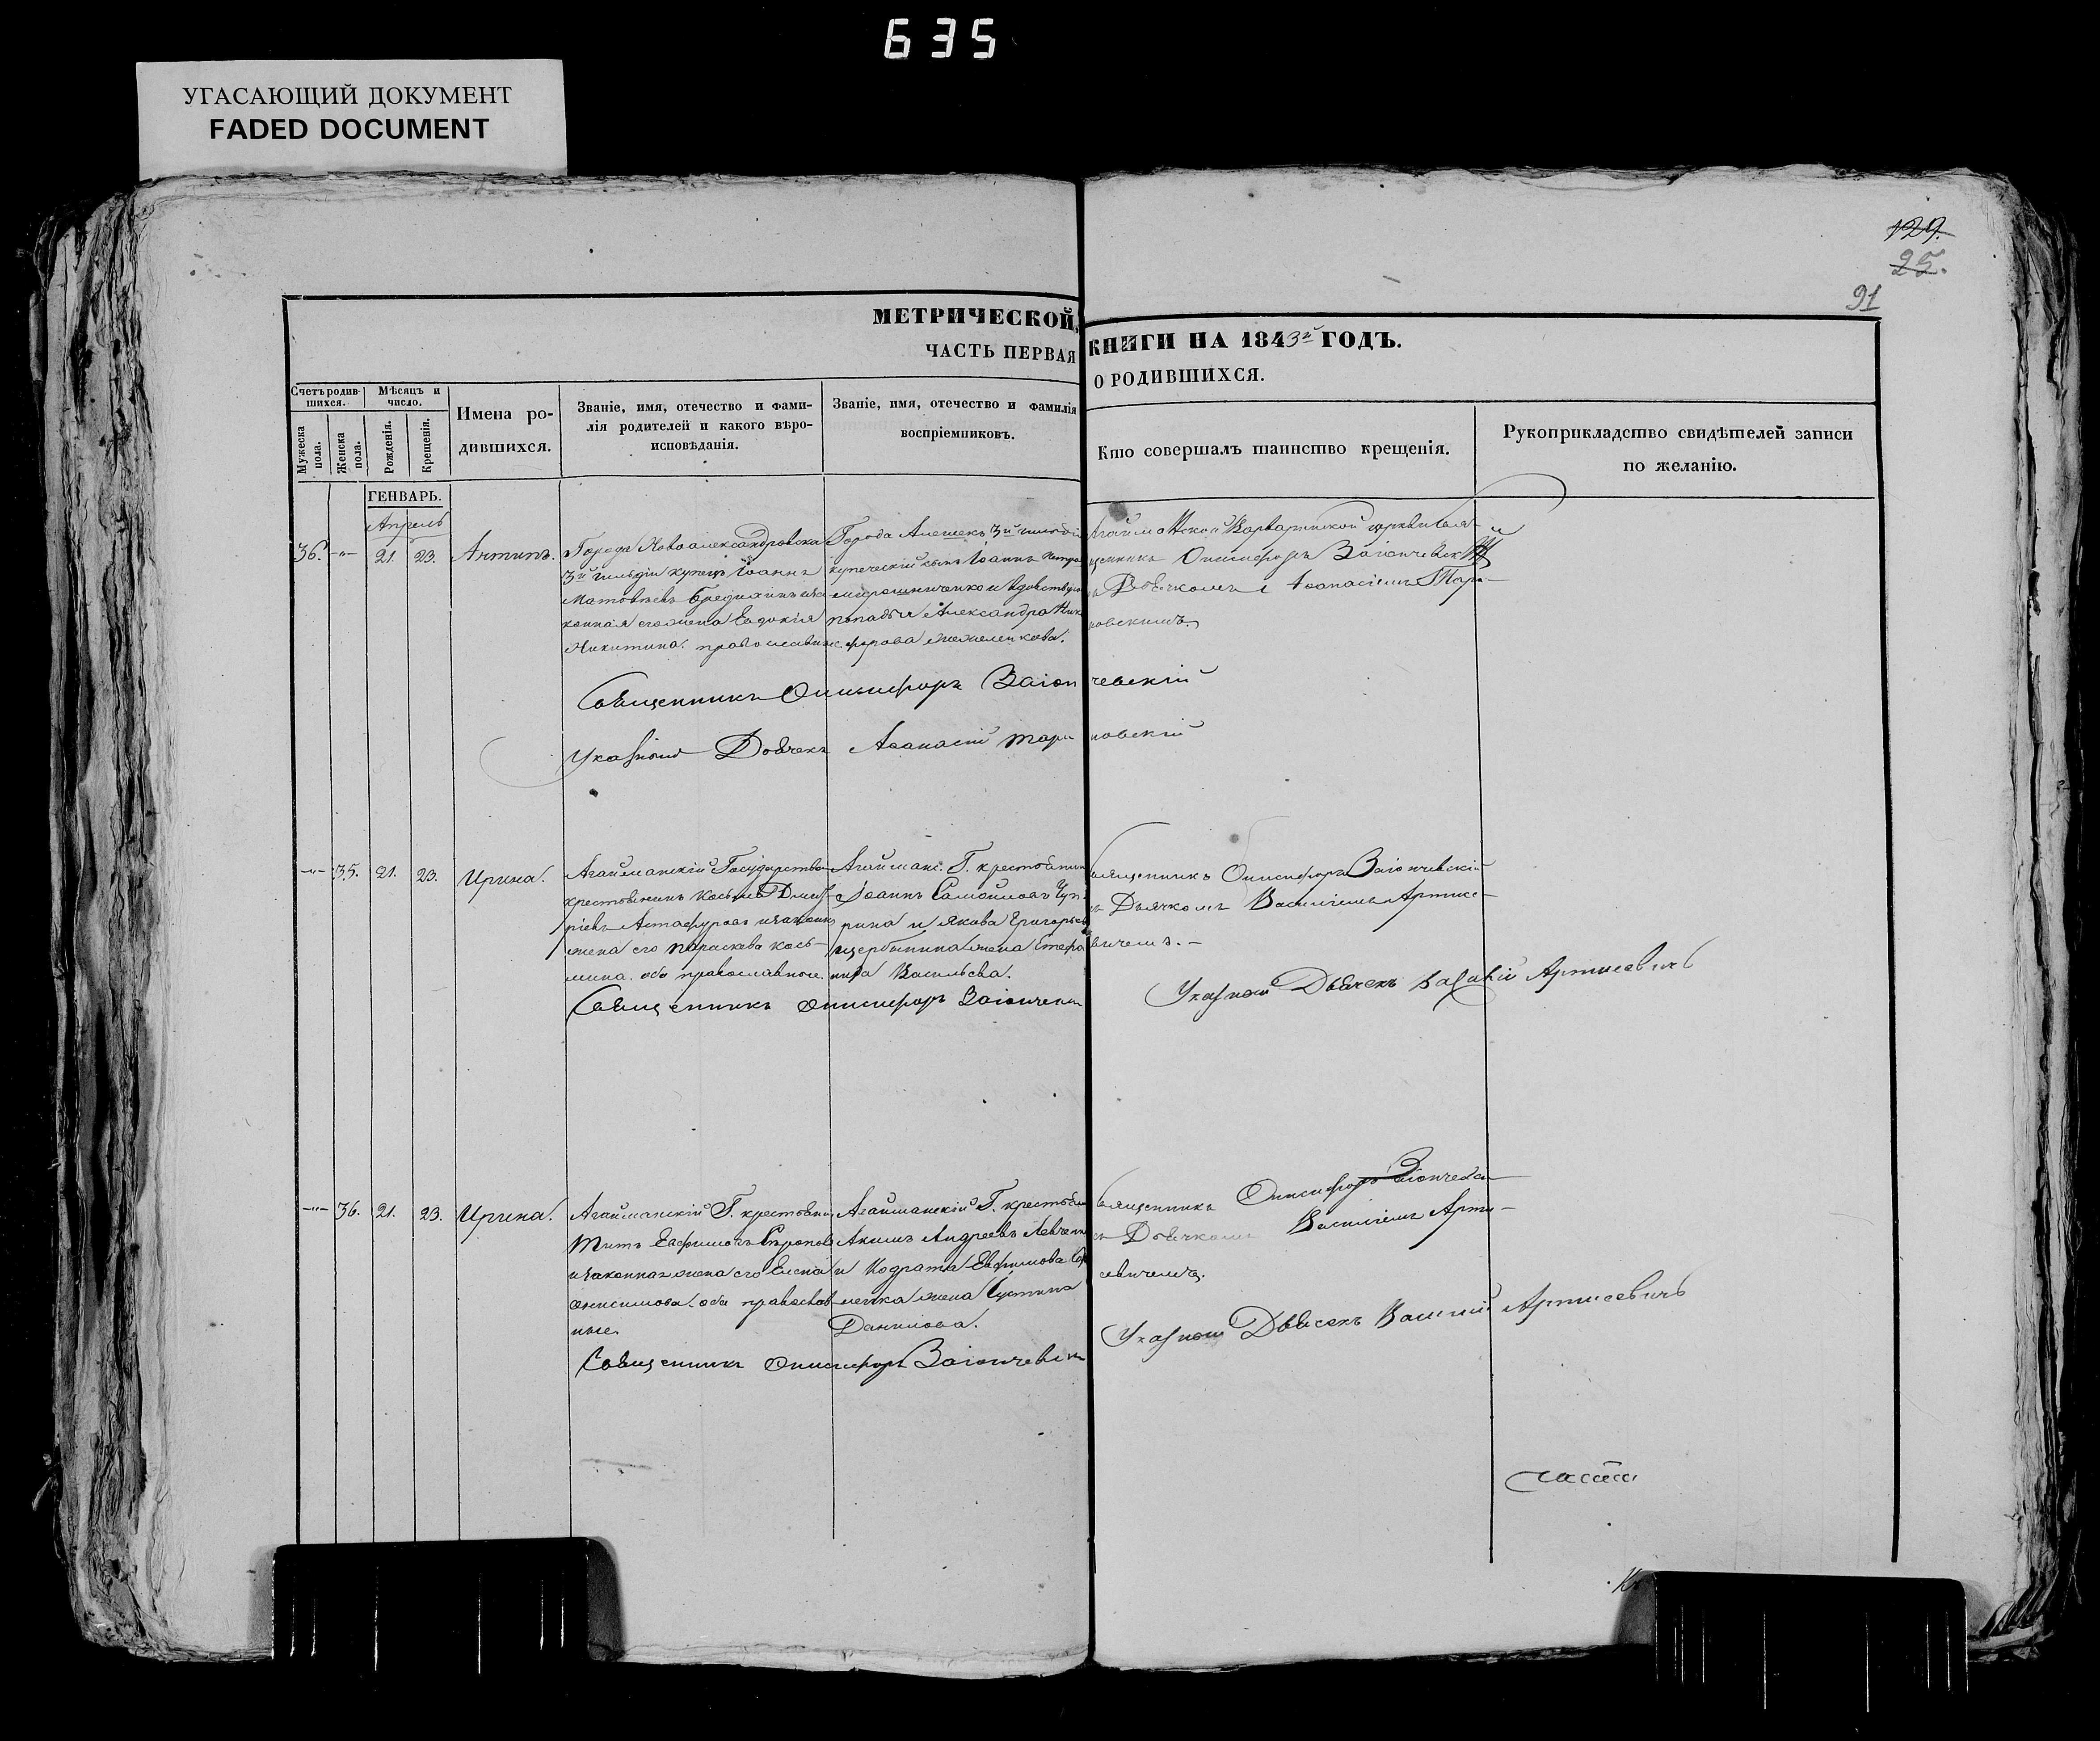 635
УГАСАЮЩИЙ ДОКУМЕНТ
FADED DOCUMENT
129.
25.
91
МЕТРИЧЕСКОЙ КНИГИ НА 1843й ГОДЪ.
ЧАСТЬ ПЕРВАЯ О РОДИВШИХСЯ.
Счетъ родив-
шихся.
Мужеска пола.
Женска пола.
Мѣсяцъ и
число.
Рожденія.
Крещенія.
Имена ро-
дившихся.
Званіе, имя, отечество и фами-
лія родителей и какого вѣро-
исповѣданія.
Званіе, имя, отечество и фамилія
воспріемниковъ.
Кто совершалъ таинство крещенія.
Рукоприкладство свидѣтелей записи
по желанію.
ГЕНВАРЬ.
Апрель
36. -"- 21. 23. Антипъ.
Города Новоалександровска
3й гильдіи купецъ Іоаннъ
Матовѣевъ
конная его жена Евдокія
Никитина. православн
Города Алешекъ 3й гильдіи
купеческій сынъ Іоаннъ Петро
мирошниченко и вдовствую
попадья Александра Ник
форова
Варваринской церкви Свя-
щенникъ Онисифоръ Заіончевскій
Дьячкомъ Афанасіемъ Тар-
новскимъ.
Священникъ Онисифоръ Заіончевскій
Указный Дьячекъ Афанасій Тарновскій
-"- 35. 21. 23. Ирина.
Агайманскій Государствен
крестьянинъ Косьма Дмит-
ріевъ Астафуровъ и законн
жена его Параскева Кось-
мина. оба православные.
Агайман. Г. крестьянин
Іоаннъ Самойловъ Чуп-
рина и Якова Григорьев
щербынина жена Стефа
нида Васильева.
Священникъ Онисифоръ Заіончевскій
съ Дьячкомъ Василіемъ Артисе-
вичемъ. -
Священникъ Онисифоръ Заіончевскій
Указный Дьячекъ Василій Артисевичъ
-"- 36. 21. 23. Ирина.
Агайманскій Г. крестьянин
Титъ Евфимовъ
и законная жена его Елена
Онисимова. оба православ
ные.
Агайманскій Г. крестьянин
Акимъ Андреевъ Левченко
и Кодрата Евфимова
ленка жена Іустина
Данилова.
Священникъ Онисифоръ Заіончевскій
съ Дьячкомъ Василіемъ Арти-
севичемъ.
Священникъ Онисифоръ Заіончевскій
Указный Дьячекъ Василій Артисевичъ